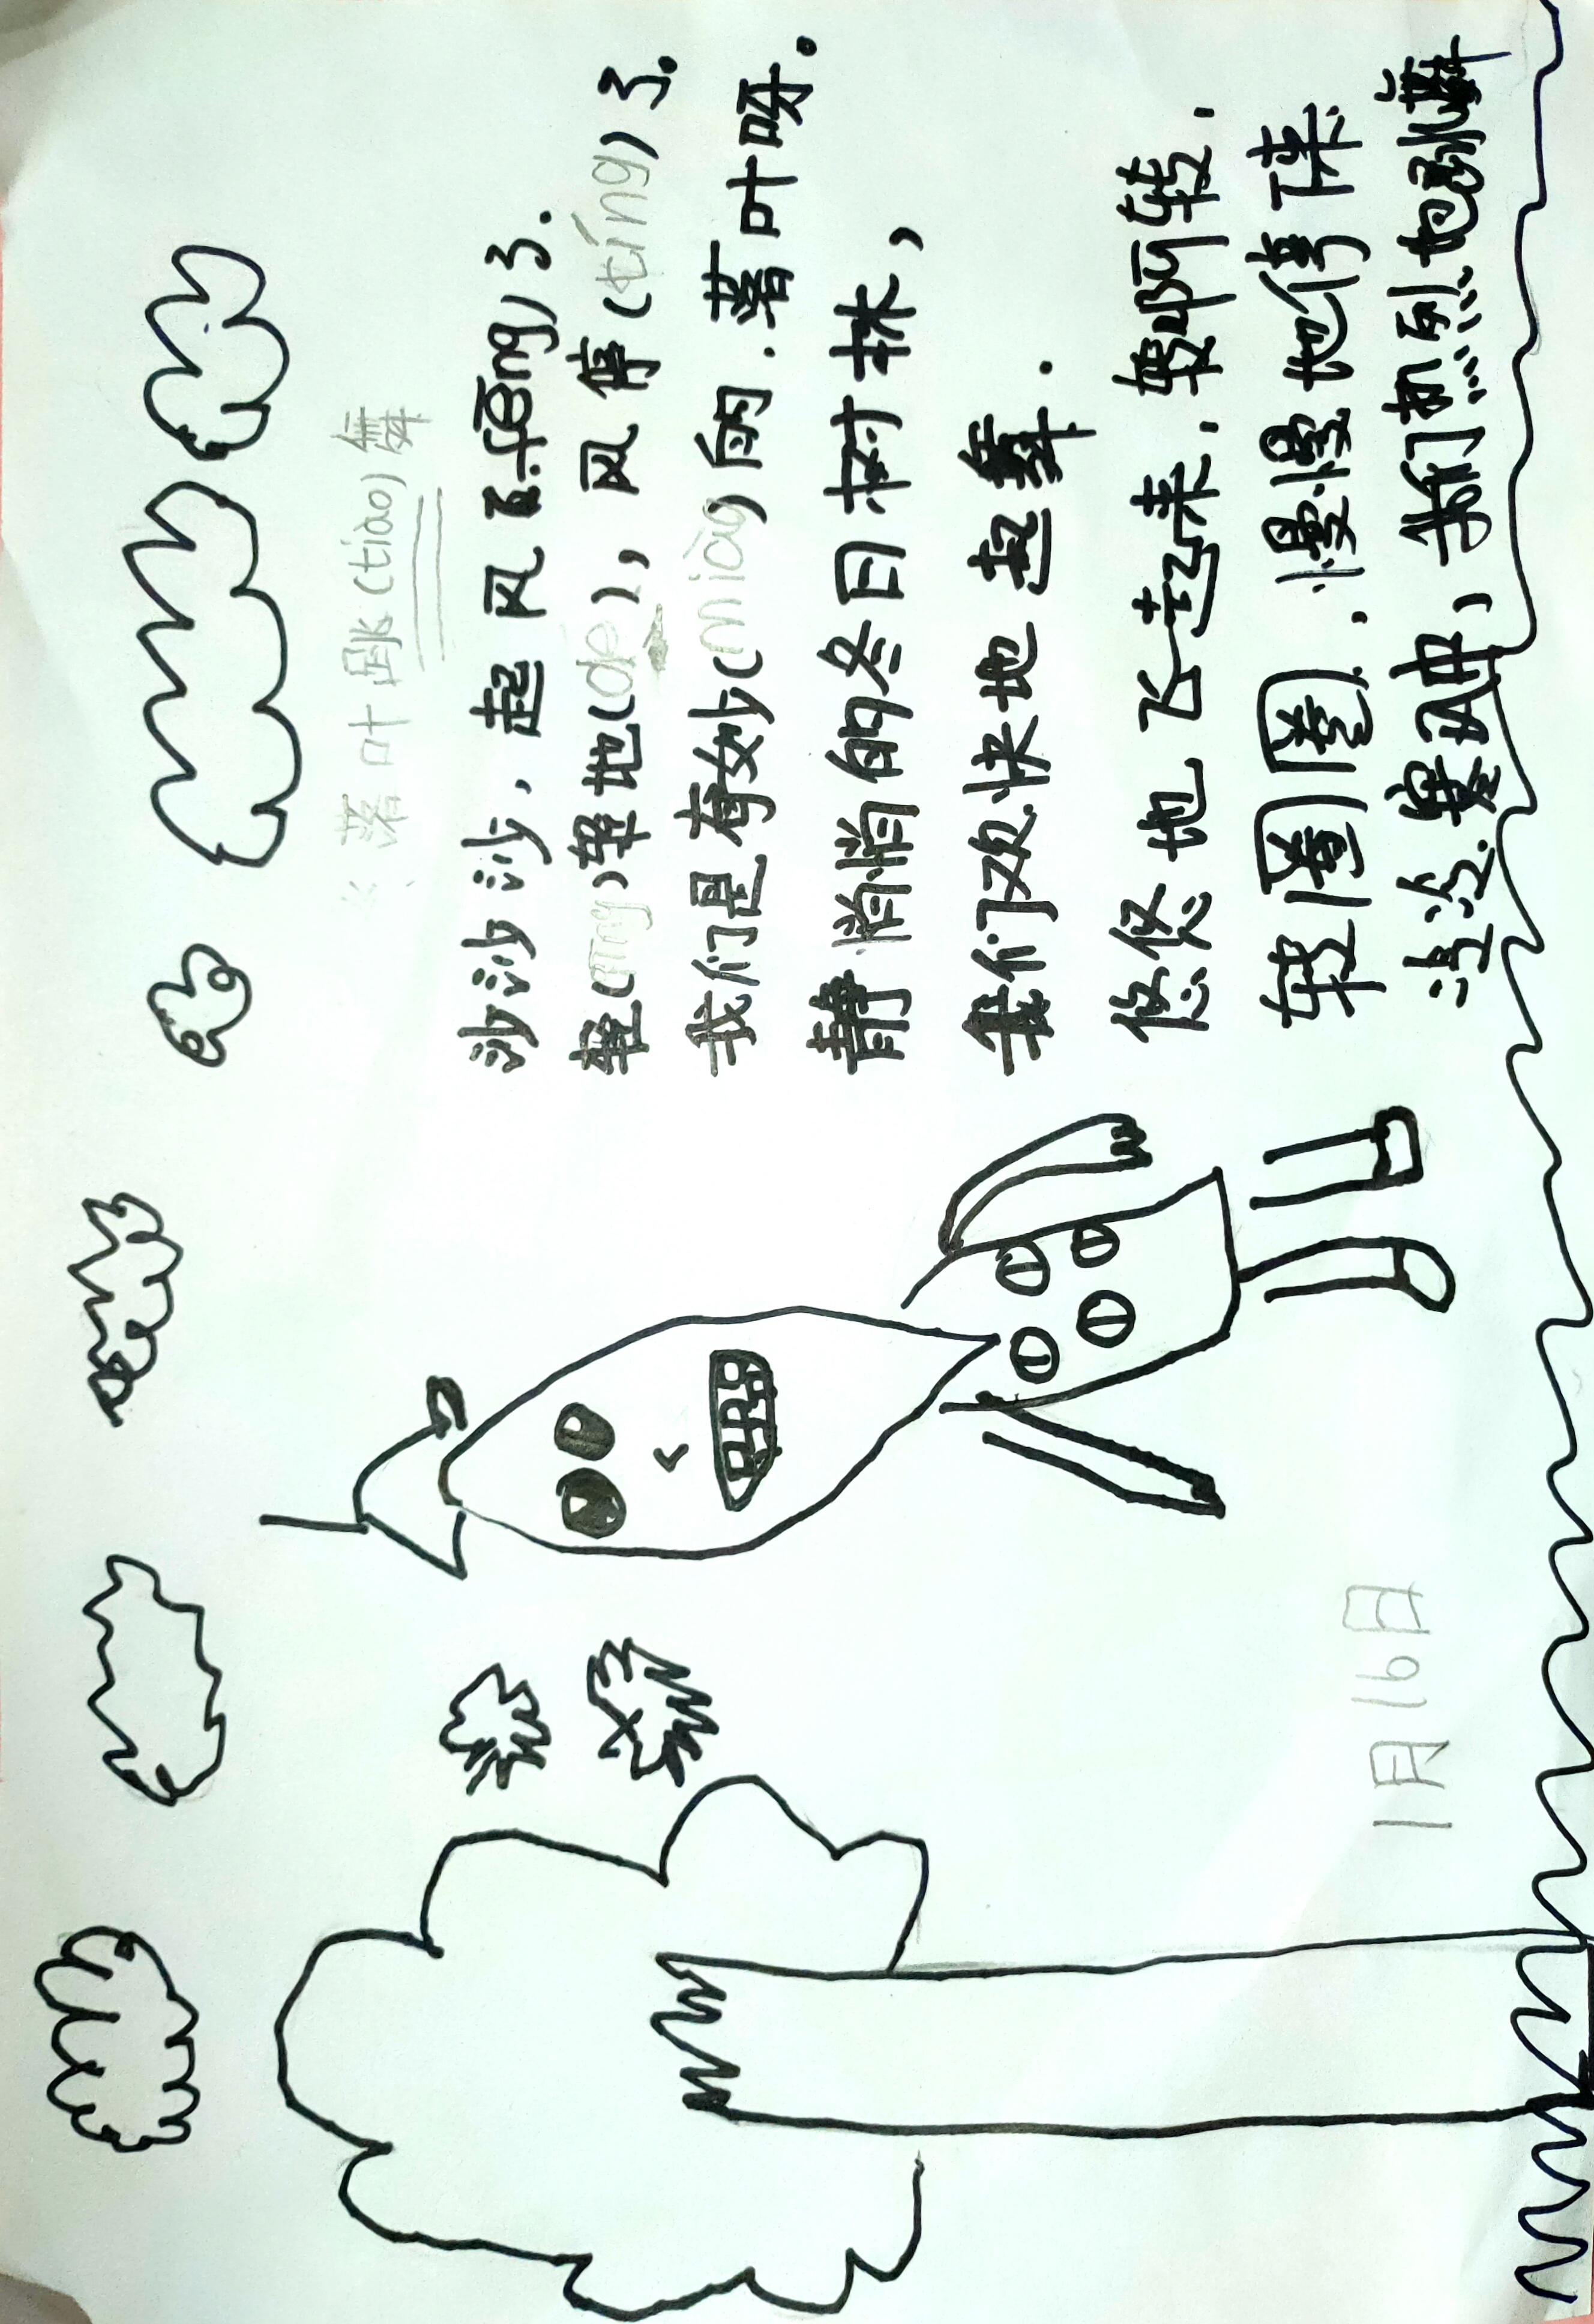 《落叶跳(tiào)舞
沙沙沙，起风(fēng)了.
轻(qīng)轻地(de)，风停(tíng)了.
我们是有妙(miào)的.落叶呀.
静悄悄的冬日树林,
我们欢快地起舞.
悠悠地飞起来,转啊转,
转圈圈,慢慢地停下来
凛凛寒风中,我们热烈地跳舞
1月16日